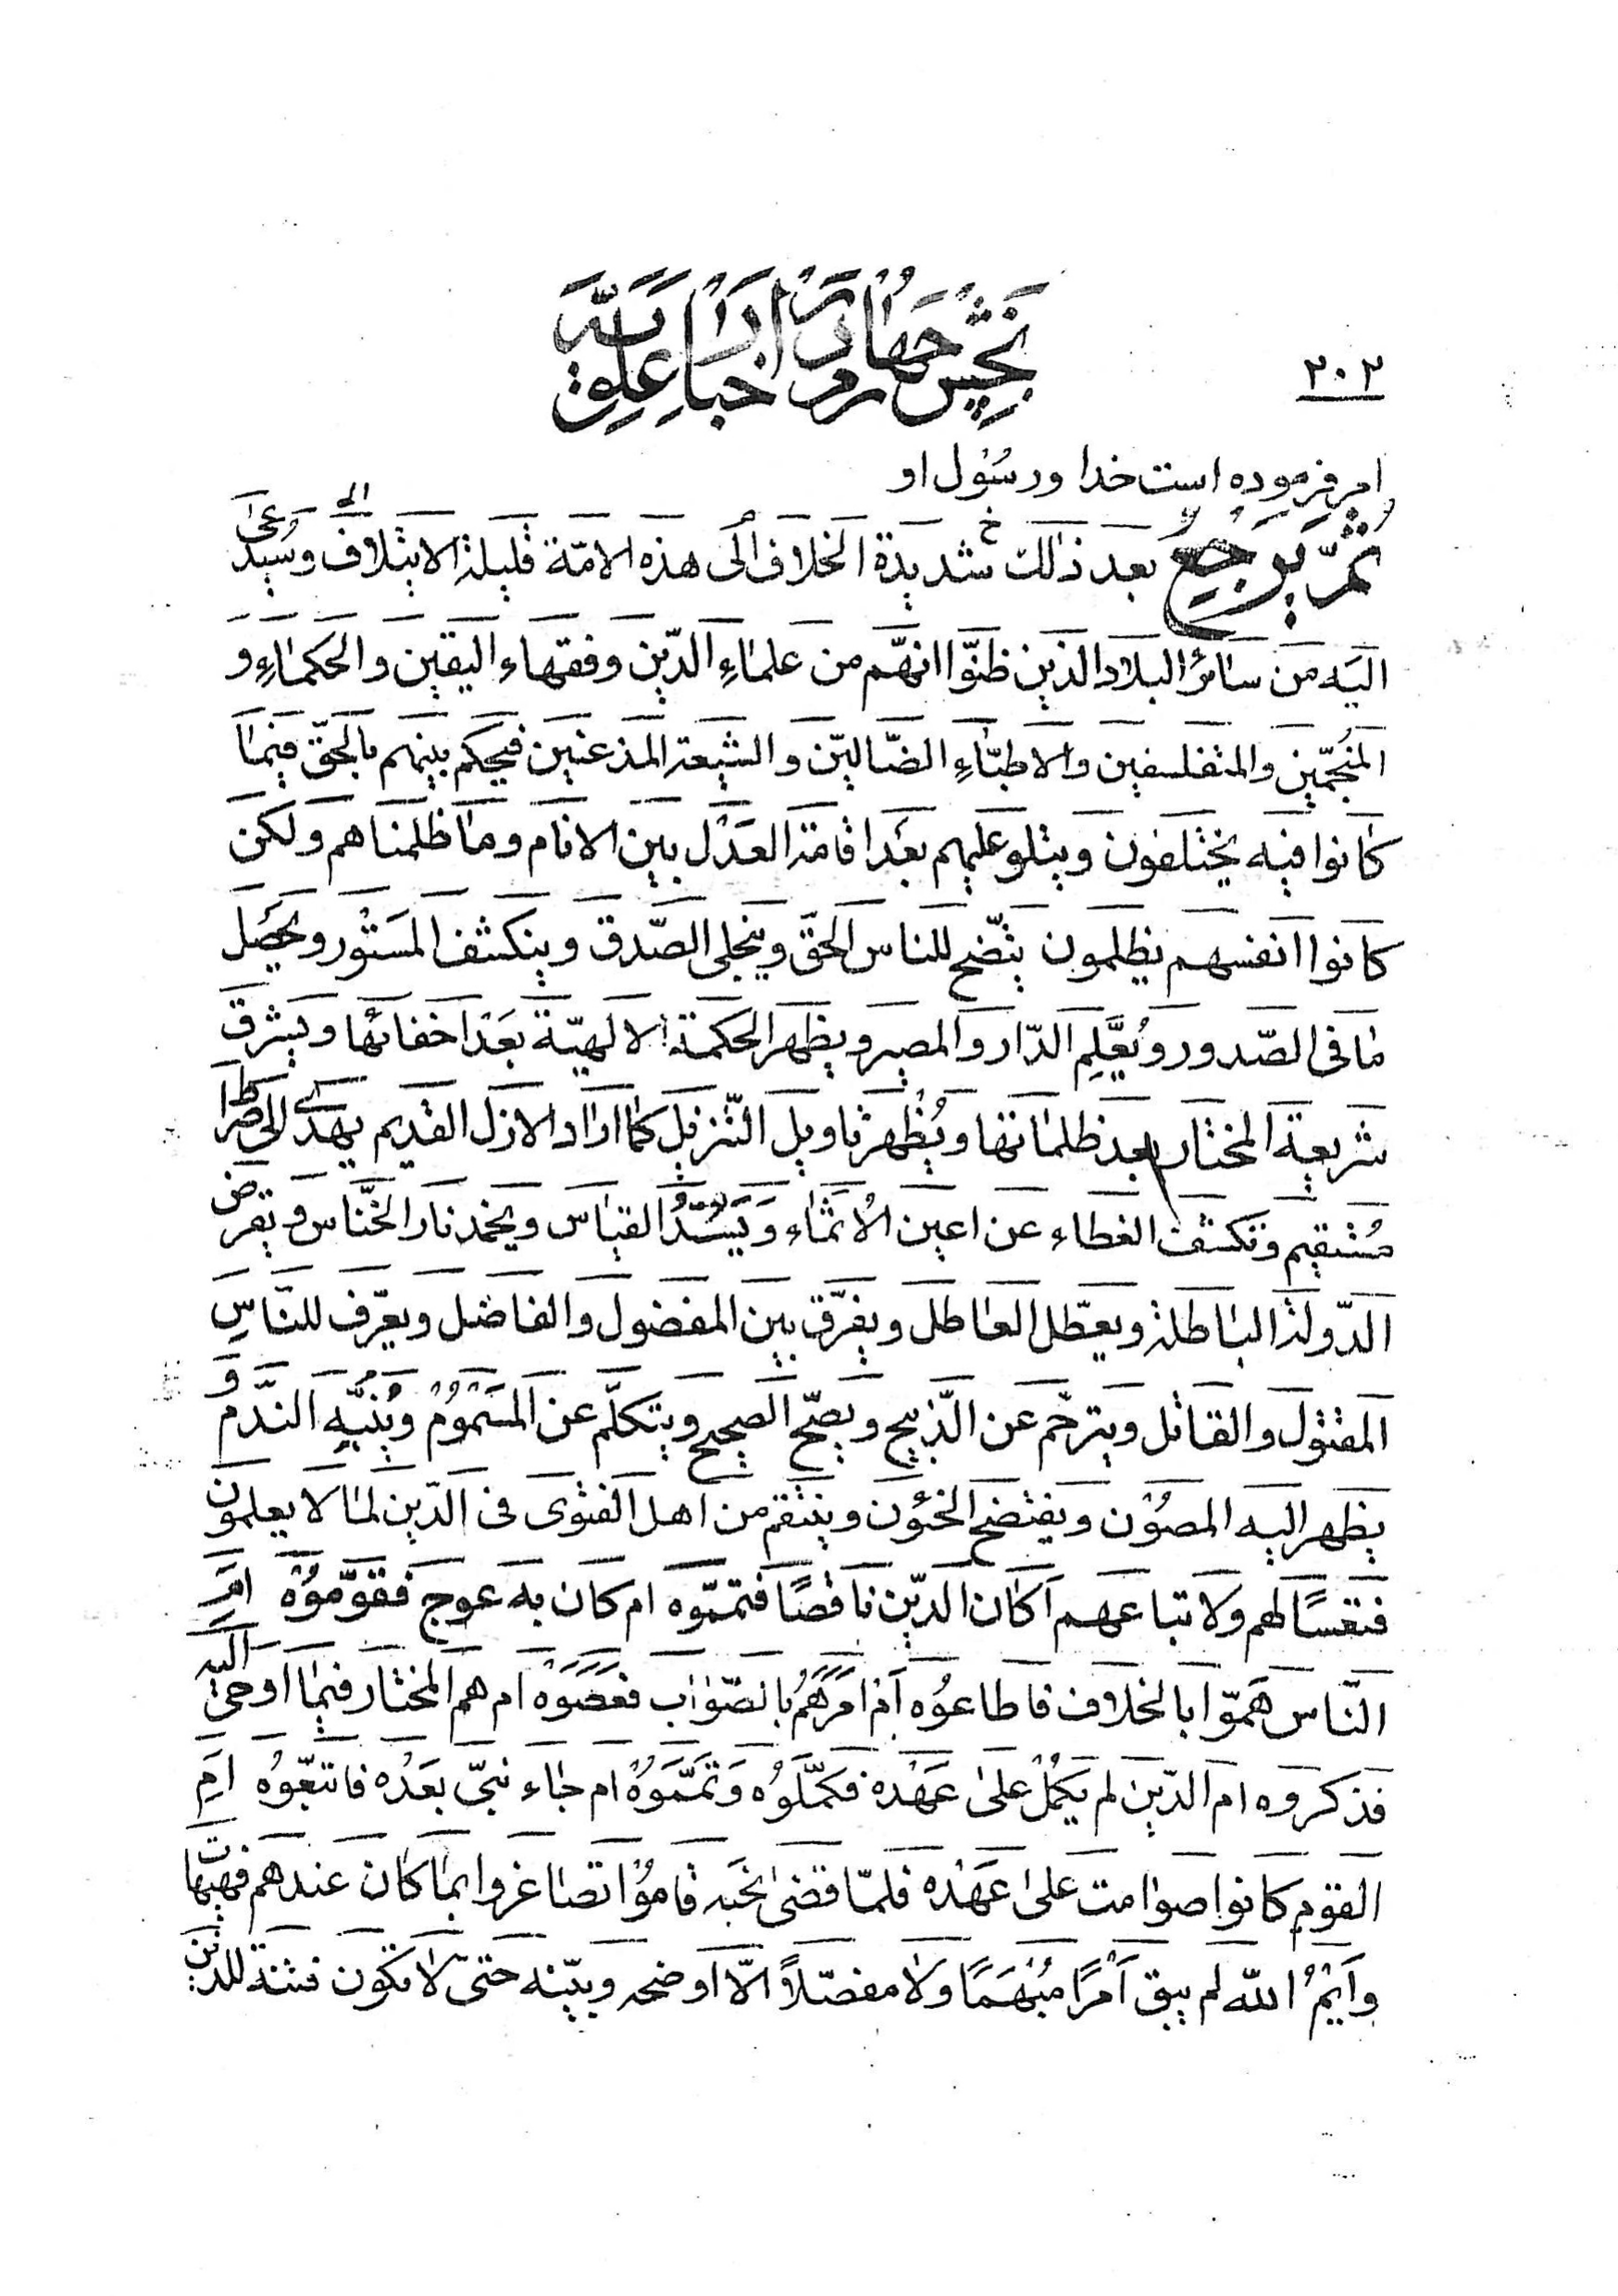 بخش چهارم در اخبار علویه
٢٠٢
امر فرموده است خدا و رسول او
ثمّ يرجع بعد ذالك خ شديدة الخلاف الى هذه الامّة قليلة الايتلاف وسيدعى الى
اليه من سائر البلاد الذين ظنّوا انهّم من علماءِ الدّين وفقهاء اليقين والحكماءِ و
المنجّمين والمتفلسفين والاطبّاءِ الضّالين والشيعة المذعنين فيحكم بينهم بالحقّ فيما
كانوا فيه يختلفون ويتلو عليهم بعد اقامة العدل بين الانام وما ظلمناهم ولكن
كانوا انفسهم يظلمون يتّضح للناس الحقّ وينجلى الصّدق وينكشف المستور ويحصل
ما فى الصّدور ويُعَّلِم الدّار والمصير ويظهر الحكمة الالهيّة بعد اخفائها ويشرق
شريعة المختار بعد ظلماتها ويُظهر تاويل التّنزيل كما اراد الازل القديم يهدى الى صراط
مستقيم وتكشف الغطاء عن اعين الاثماء ويسدّ القياس ويخمد نار الخنّاس ويقرض
الدّولة الباطلة ويعطّل العاطل ويفرّق بين المفضول والفاضل ويعرّف للنّاسِ
المقتول والقاتل ويترحّم عن الذّبيح ويصحّ الصحيح ويتكلّم عن المسموم وينبّه الندّم و
يظهر اليه المصون ويفتضح الخئون وينتقم من اهل الفتوى فى الدّين لما لا يعلمون
فتعسًا لهم ولاتباعهم اكان الدّين ناقصًا فتممّوه ام كان به عوج فقوّموه ام
النّاس همّوا بالخلاف فاطاعوه ام امرهم بالصّواب فعصوه ام هم المختار فيما اوحى اليه
فذكروه ام الدّين لم يكمل على عهده فكمّلوه وتمّموه ام جاء نبىّ بعده فاتبّعوه ام
القوم كانوا صوامت على عهده فلمّا قضى نحبه قاموا تصاغروا بما كان عندهم فهيهات
وايم الله لم يبق امرًا مبهمًا ولا مفصّلاً الّا اوضحه وبيّنه حتى لا تكون فتنة للذين